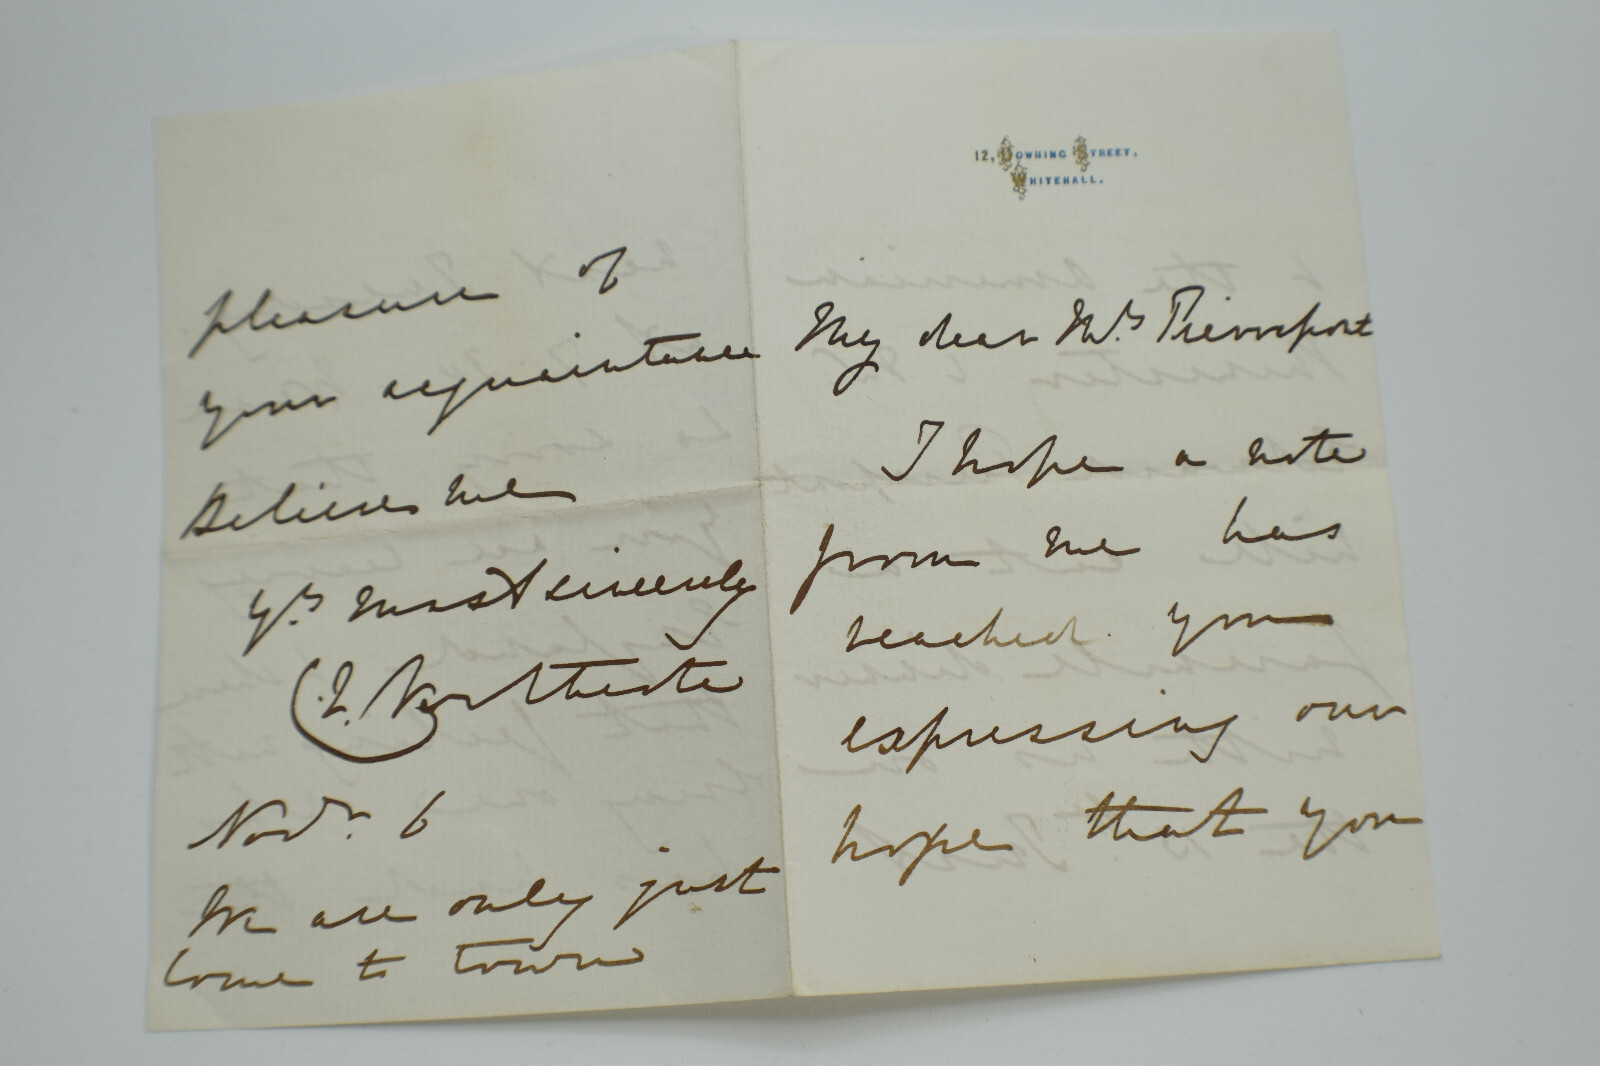 12, Downing Street,
Whitehall.
My dear Mrs. Pierrepont
I hope a note
from me has
reached you
expressing our
hope that you
pleasure of
your acquaintance
Believe me
Yrs. most sincerely
C. Northcote
Novr. 6
We are only just
come to town